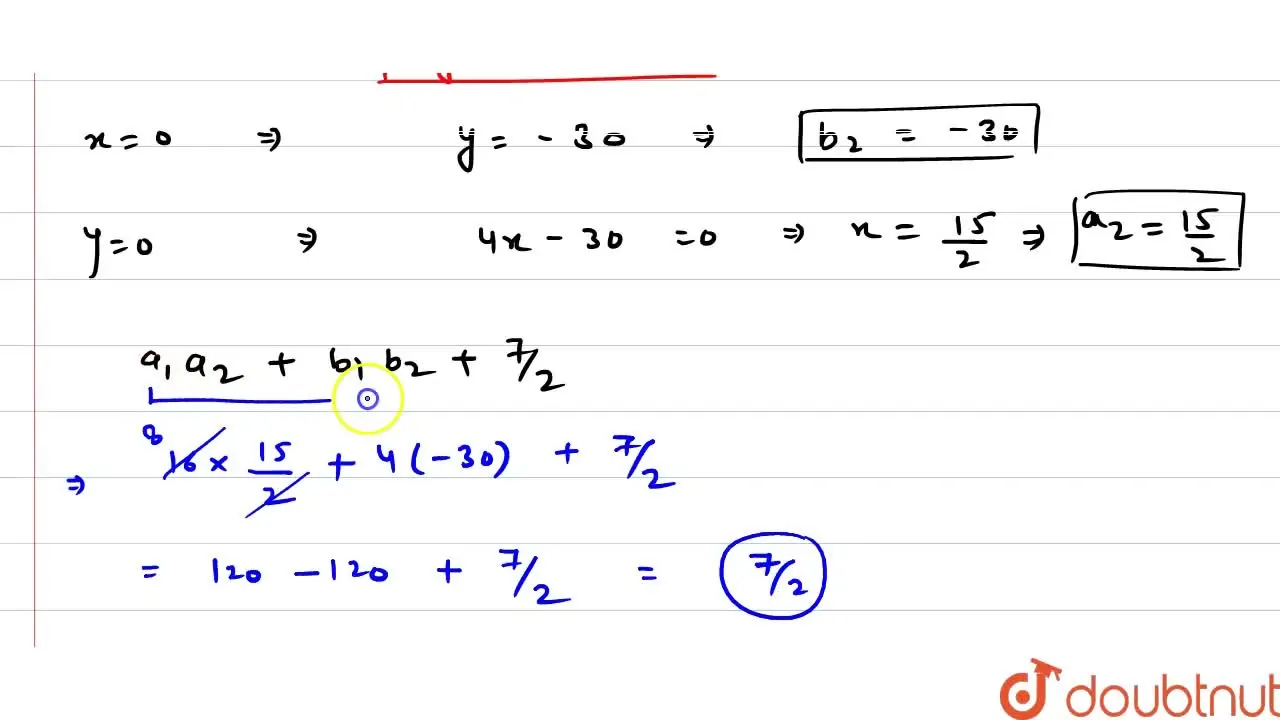 x = 0 ⇒ y = - 30 ⇒ b₂ = - 30
y = 0 ⇒ 4x - 30 = 0 ⇒ x = 15/2 ⇒ a₂ = 15/2
a₁ a₂ + b₁ b₂ + 7/2
⇒ 8 16 × 15/2 + 4 (-30) + 7/2
= 120 - 120 + 7/2 = 7/2
doubtnut